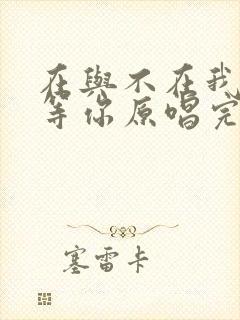 在與不在我
等你原唱完
塞雷卡